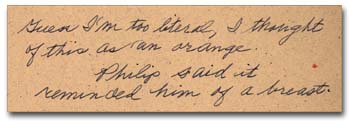 Guess I'm too literal, I thought
of this as an orange.
Philip said it
reminded him of a breast.